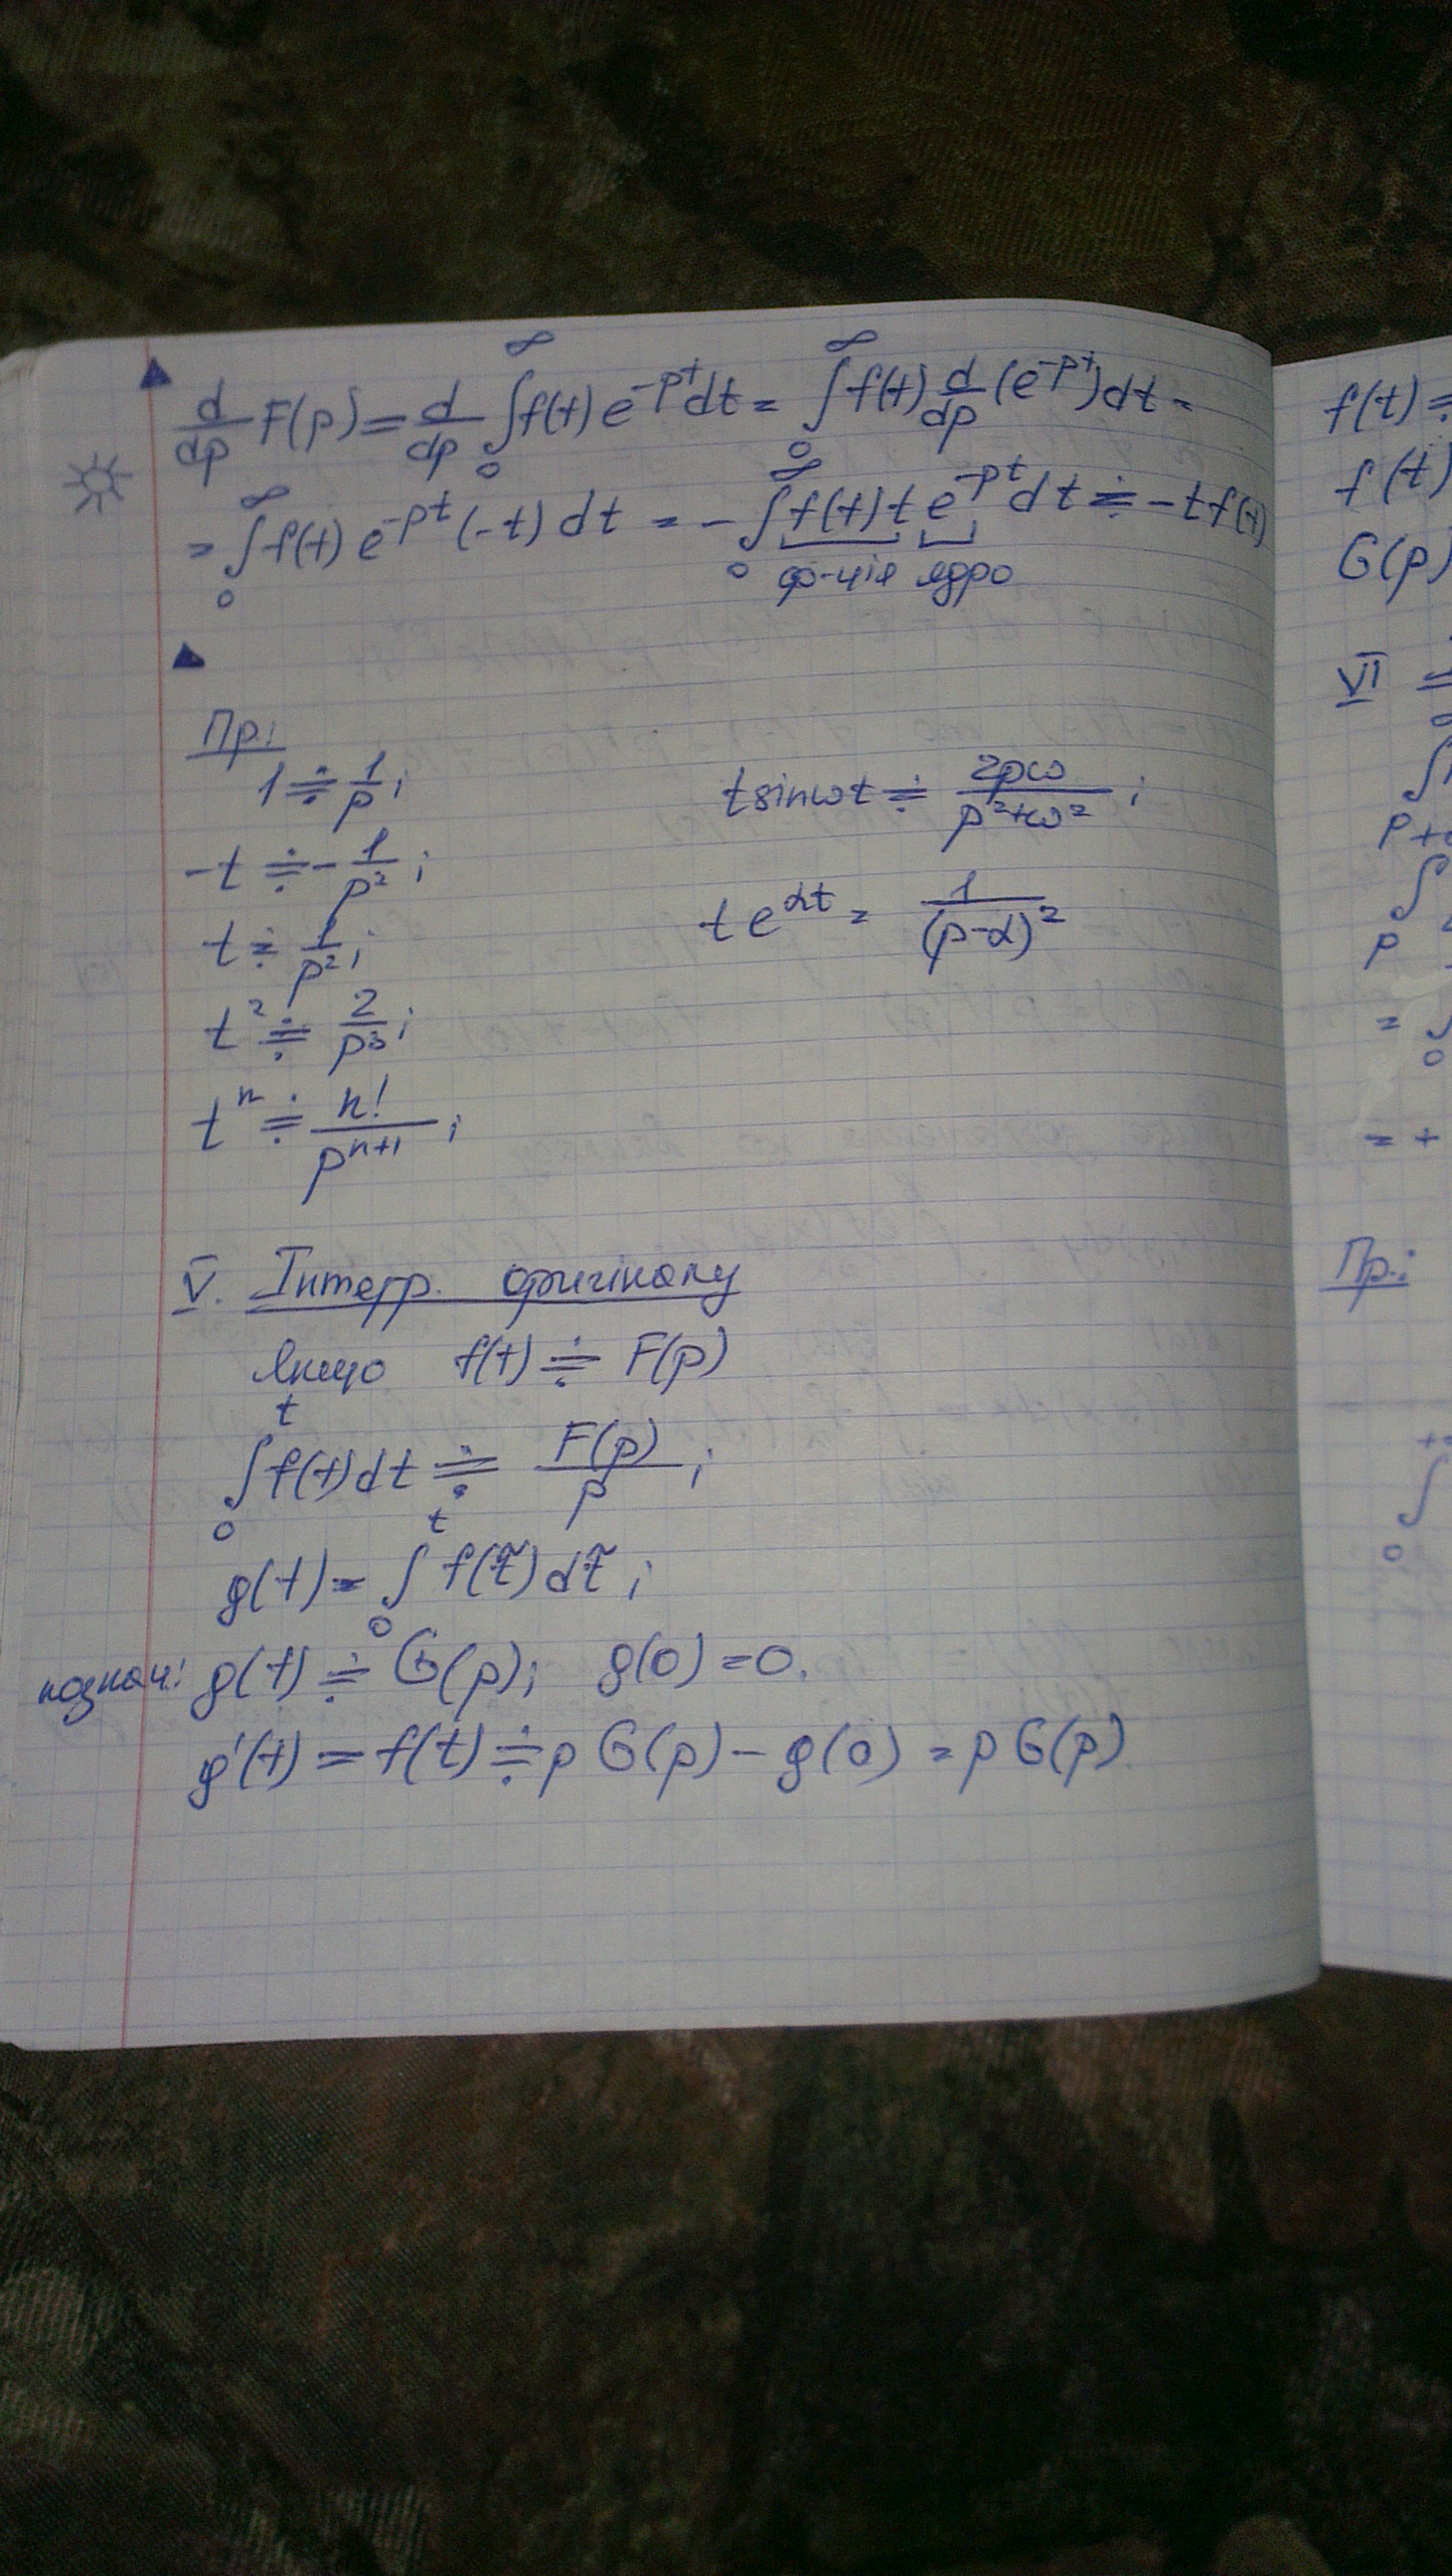 d/dp F(p) = d/dp ∫₀^∞ f(t) e^(-pt) dt = ∫₀^∞ f(t) d/dp (e^(-pt)) dt =
= ∫₀^∞ f(t) e^(-pt) (-t) dt = - ∫₀^∞ f(t) t e^(-pt) dt ≑ -t f(t)
ф-ція ядро
Пр:
1 ≑ 1/p;
-t ≑ - 1/p²;
t ≑ 1/p²;
t² ≑ 2/p³;
tⁿ ≑ n!/p^(n+1);
t sinωt ≑ 2pω/(p²+ω²);
t e^(αt) = 1/(p-α)²
V. Інтегр. оригіналу
Якщо f(t) ≑ F(p)
∫₀^t f(t) dt ≑ F(p)/p;
g(t) = ∫₀^t f(τ) dτ;
познач: g(t) ≑ G(p); g(0) = 0.
g'(t) = f(t) ≑ p G(p) - g(0) = p G(p)
f(t) ≑
f(t)
G(p)
VI
Пр: